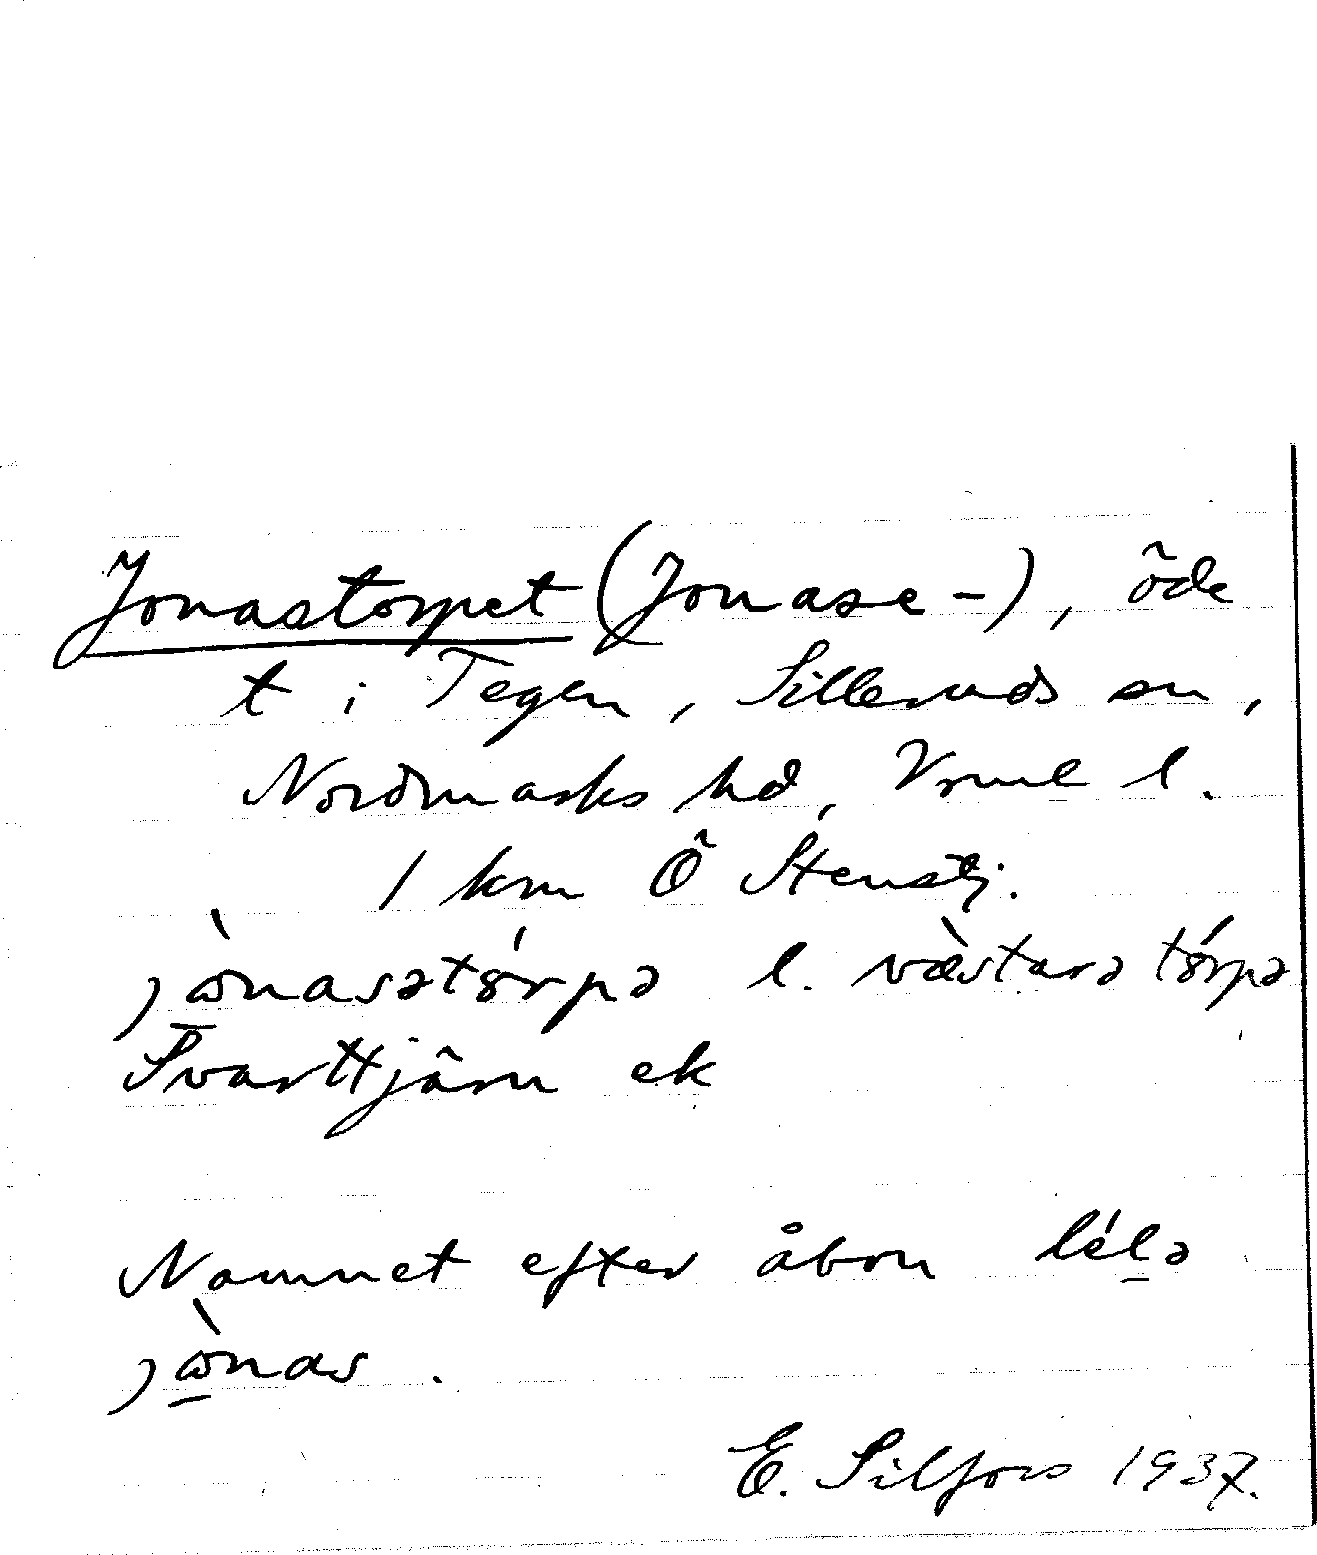 Jonastorpet (Jonase-), öde
t i Tegen, Silleruds sn,
Nordmarks hd, Vrml l.
1 km Ö Stenstj.
jònasətórpə l. væ̀starə tórpə
Svarttjärn ek
Namnet efter åbon lélə
jònas.
E. Silfors 1937.